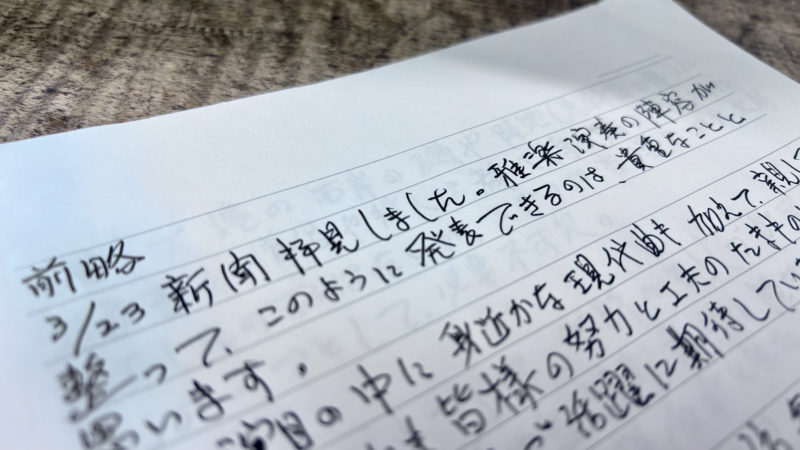 前略
3/23 新聞拝見しました。雅楽演奏の陣容が
整って、このように発表できるのは、貴重なことと
思います。
演目の中に身近かな現代曲も加えて、親し
も皆様の努力と工夫のたまもの
ご活躍に期待してい